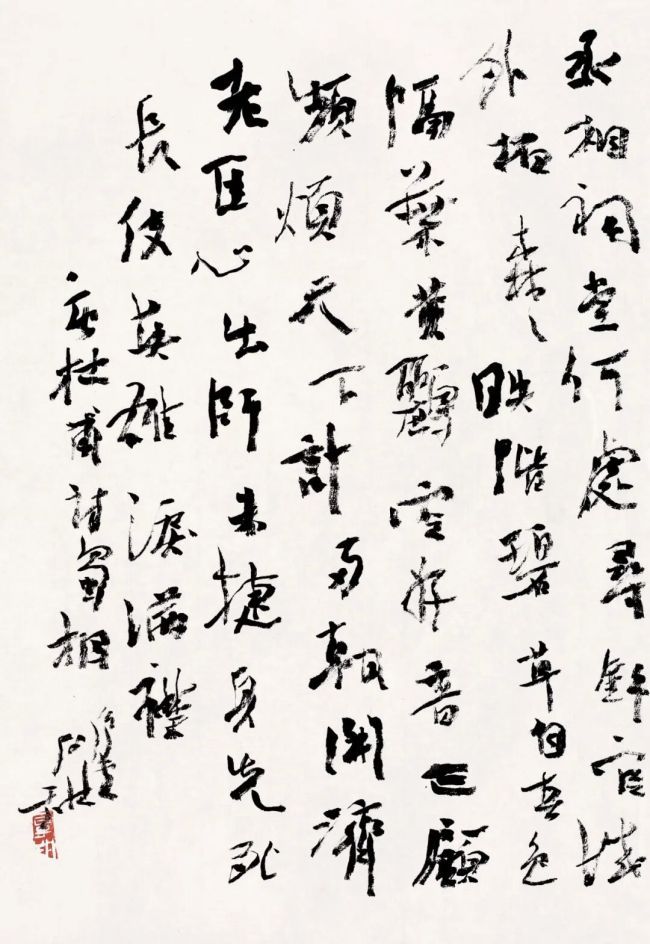 丞相祠堂何處尋錦官城
外柏森〻映階碧草自春色
隔葉黃鸝空好音三顧
頻煩天下計兩朝開濟
老臣心出師未捷身先死
長使英雄淚滿襟
杜甫詩蜀相